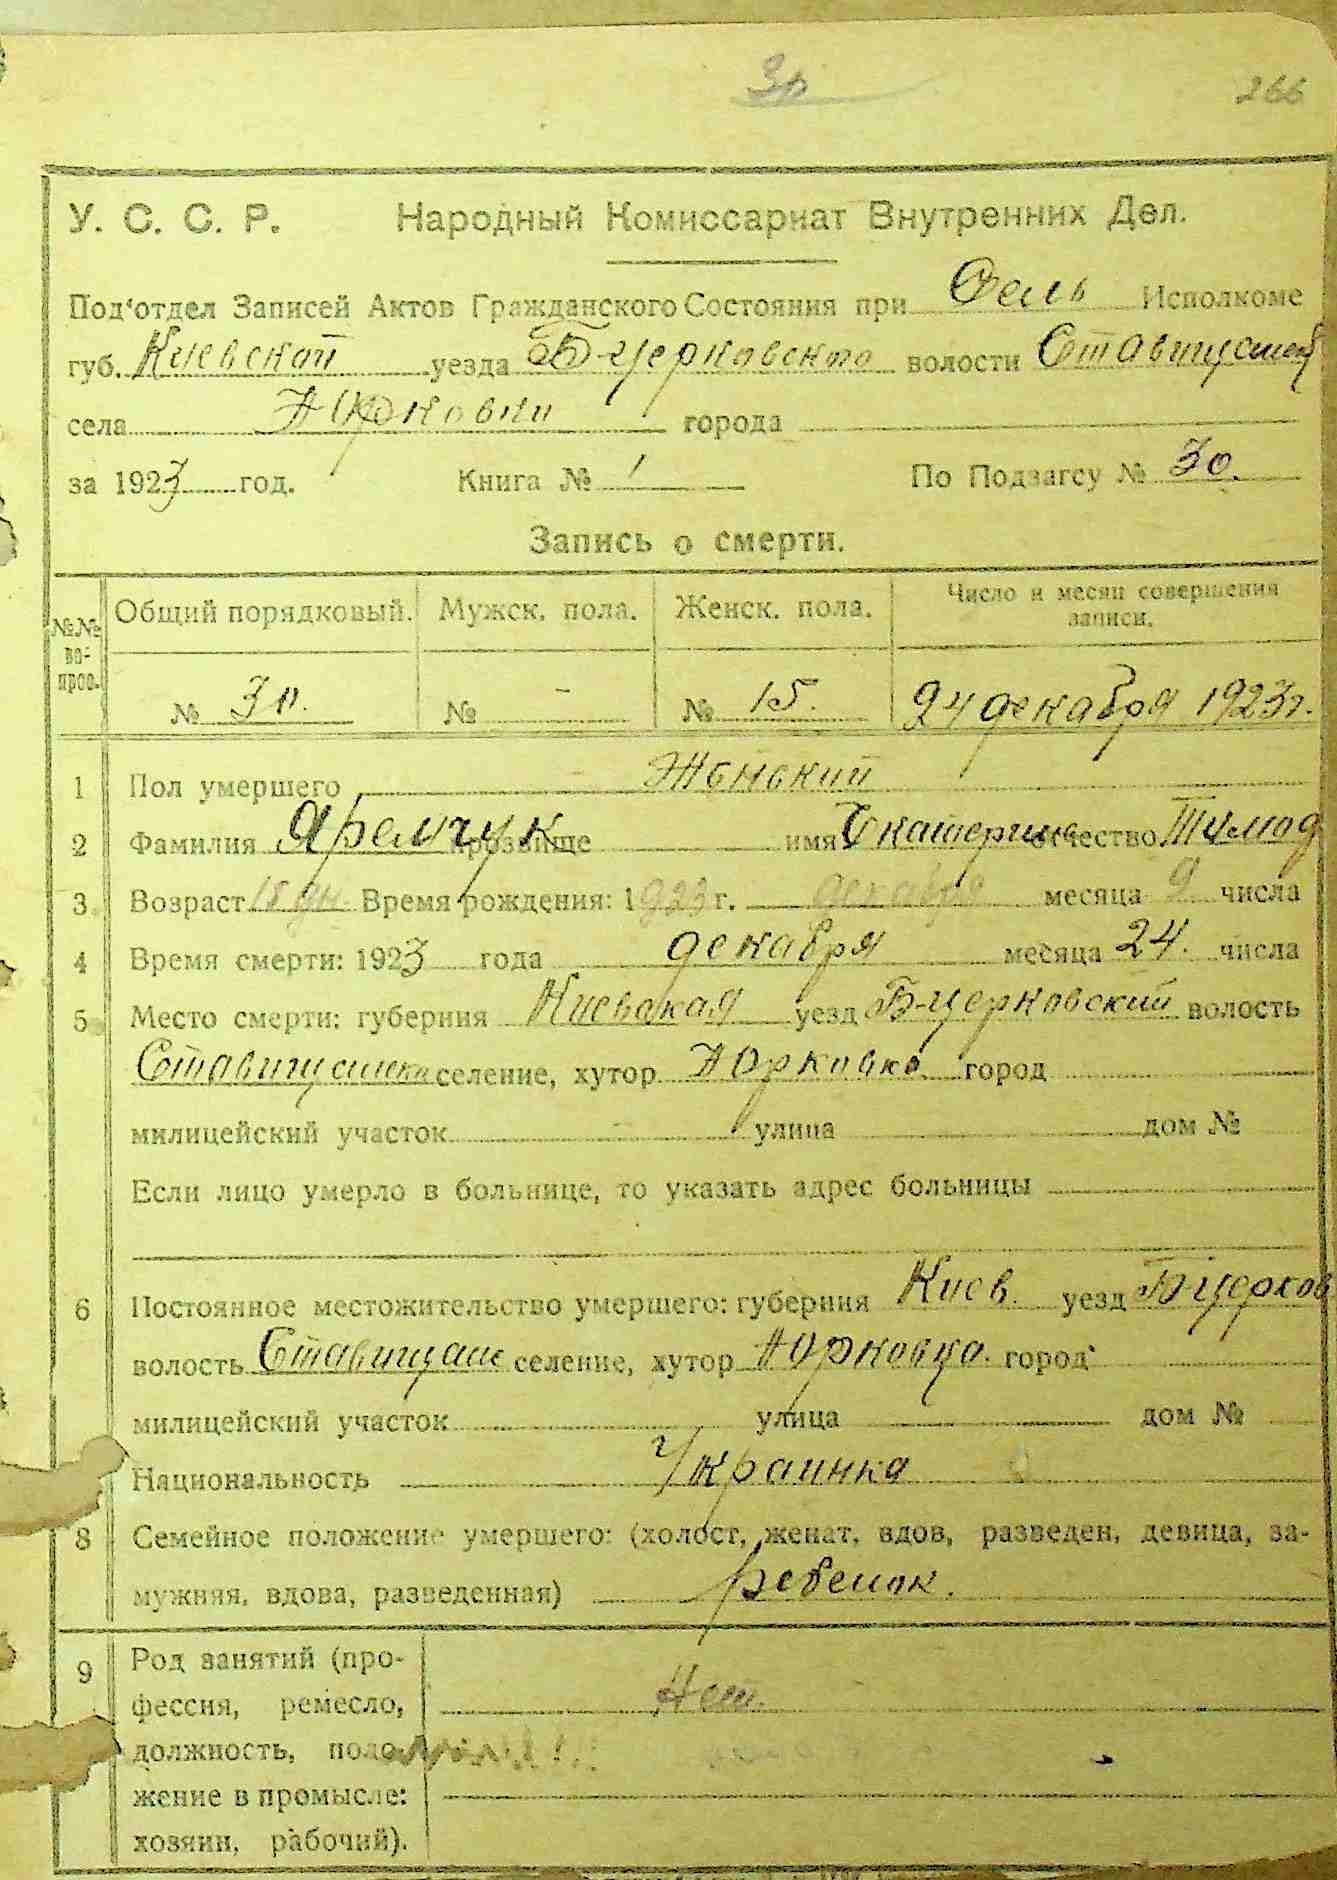 30
266
У. С. С. Р. Народный Комиссариат Внутренних Дел.
Под'отдел Записей Актов Гражданского Состояния при Сель Исполкоме
губ. Киевской уезда Б-церковского волости Ставищской
села Юрковки города
за 1923 год. Книга № 1 По Подзагсу № 30.
Запись о смерти.
№№ во- прос. Общий порядковый. Мужск. пола. Женск. пола. Число и месяц совершения записи.
№ 30. № - № 15. 24 декабря 1923 г.
1 Пол умершего Женский
2 Фамилия Яремчук прозвище имя Екатерина отчество Тимоф
3 Возраст 15 дн. Время рождения: 1923 г. декабря месяца 9 числа
4 Время смерти: 1923 года декабря месяца 24. числа
5 Место смерти: губерния Киевская уезд Б-церковский волость
Ставищская селение, хутор Юрковка город
милицейский участок улица дом №
Если лицо умерло в больнице, то указать адрес больницы
6 Постоянное местожительство умершего: губерния Киев. уезд Б церков
волость Ставищан селение, хутор Юрковка. город
милицейский участок улица дом №
Национальность Украинка
8 Семейное положение умершего: (холост, женат, вдов, разведен, девица, за-
мужняя, вдова, разведенная) ребенок.
9 Род занятий (про-
фессия, ремесло, Нет.
должность, поло-
жение в промысле:
хозяин, рабочий).